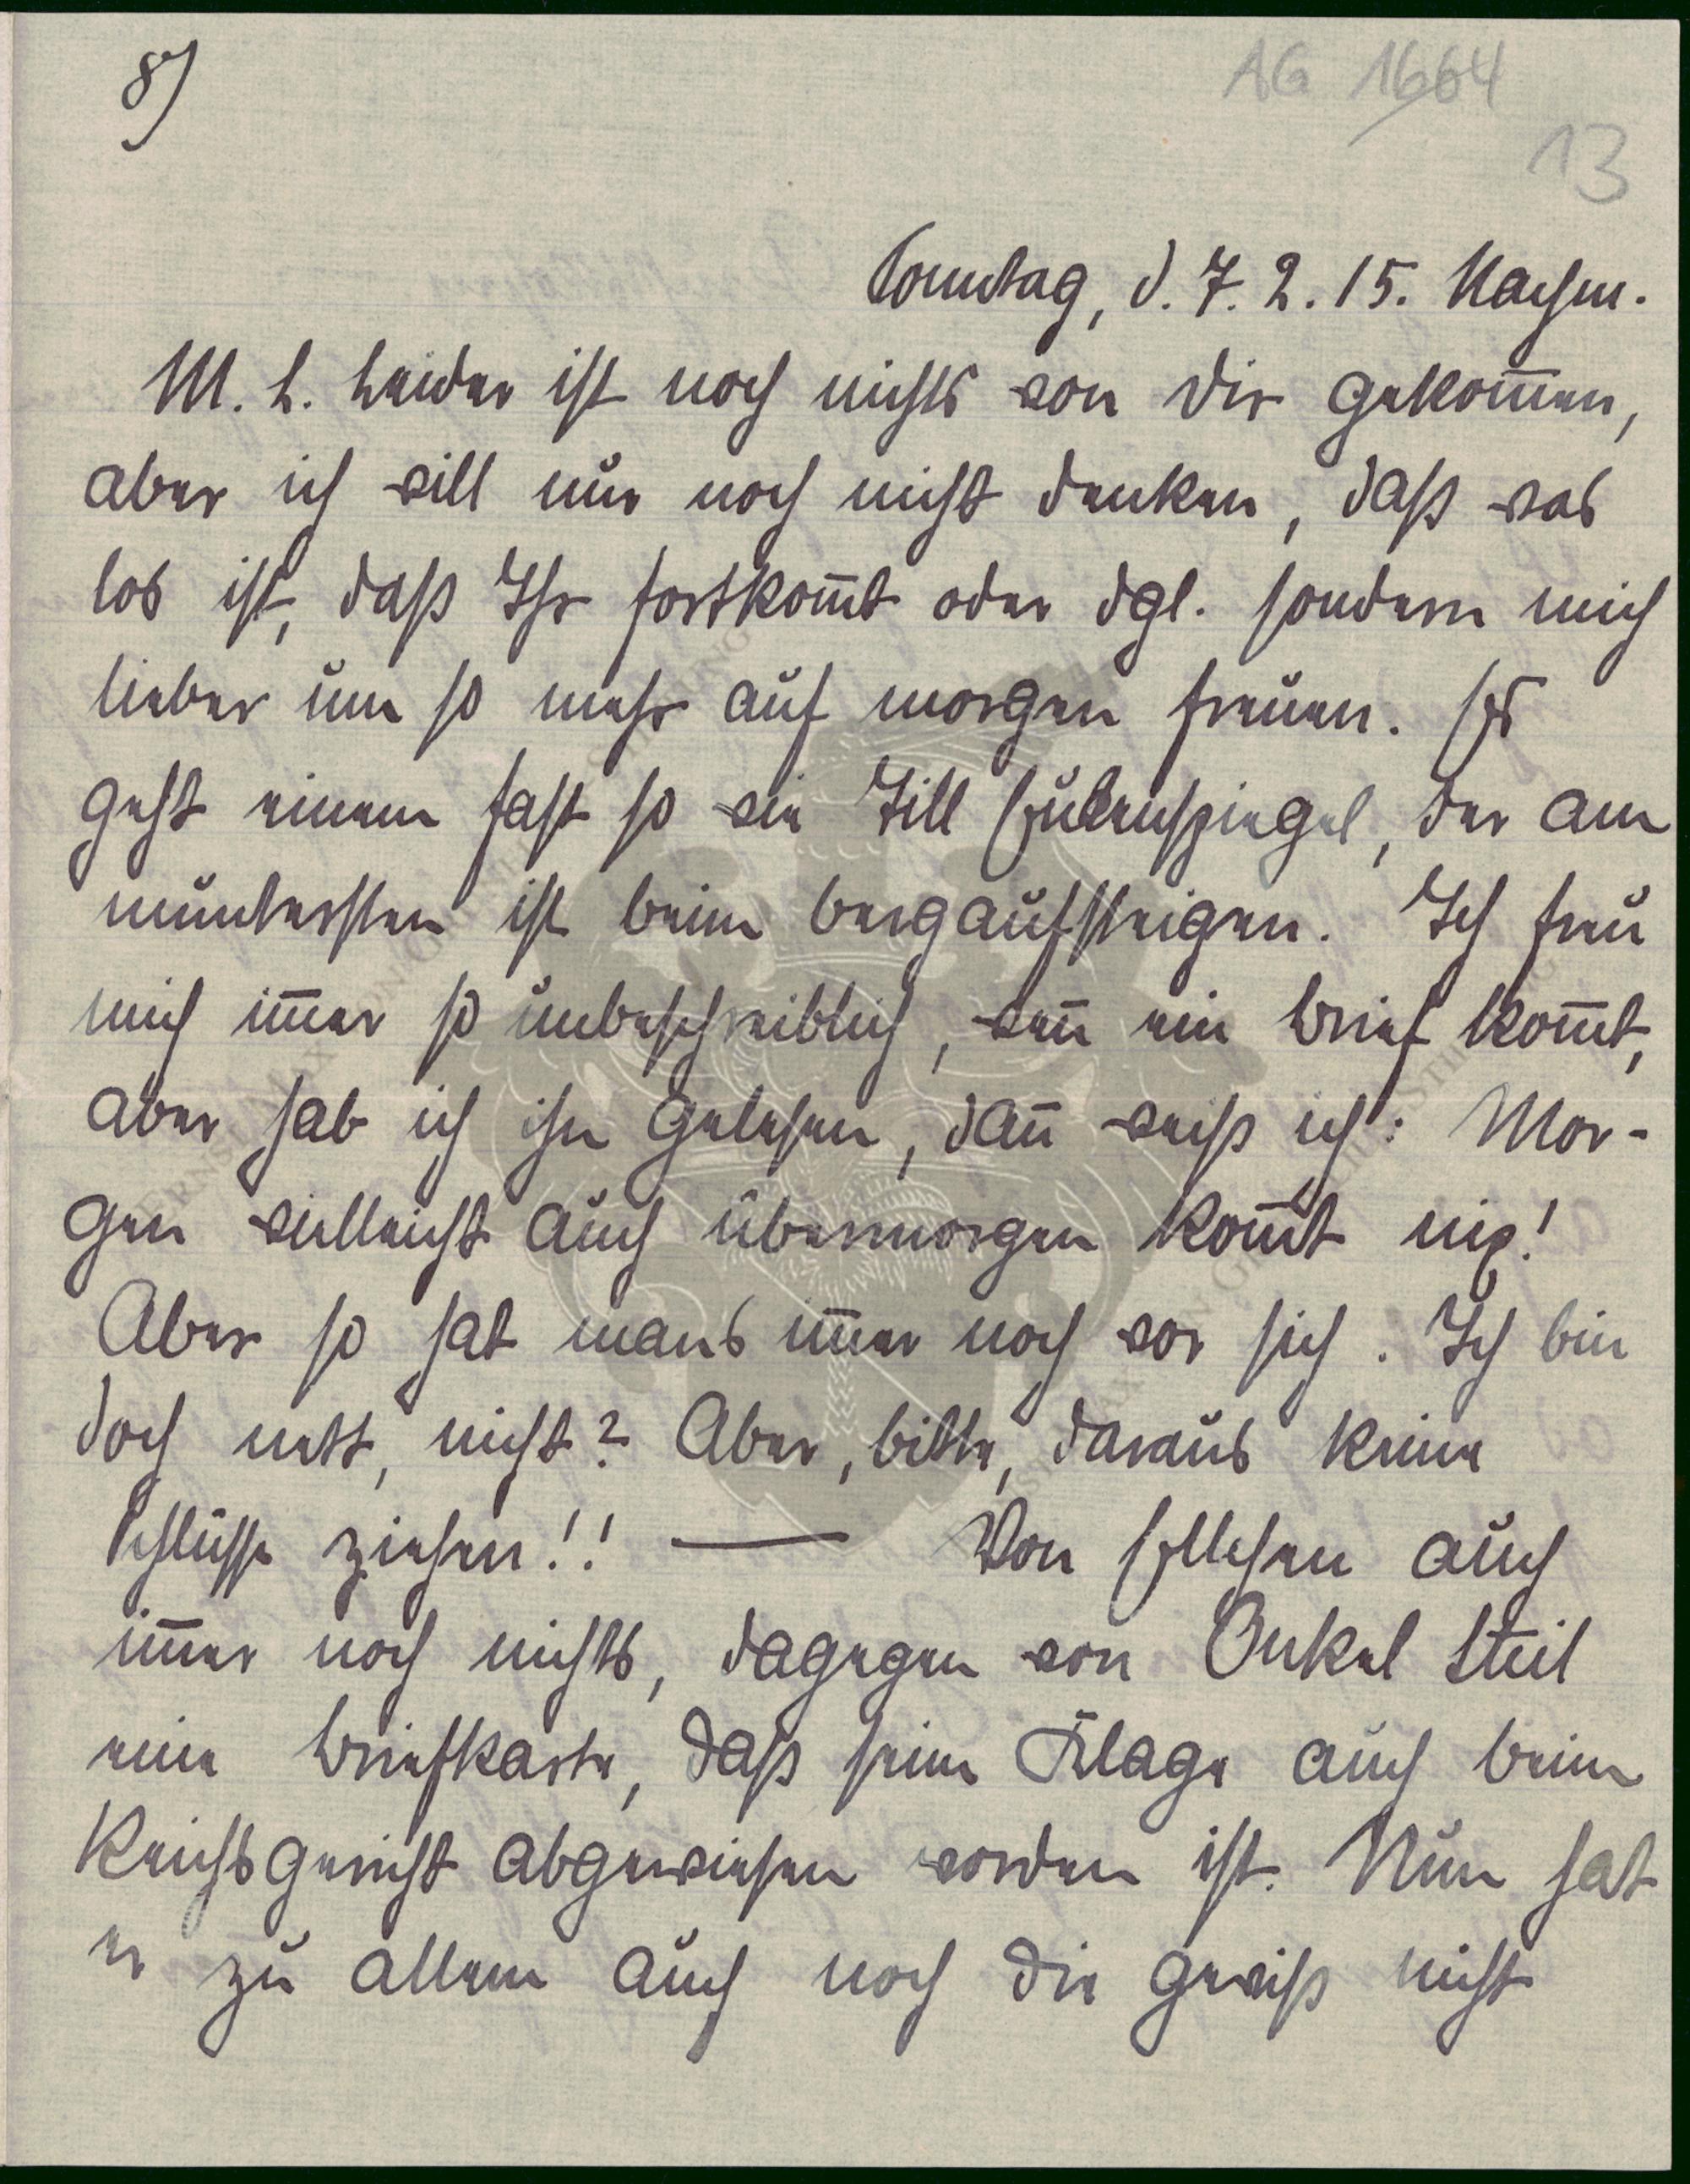 8)
AG 1664
13
Sonntag, d. 7. 2. 15. Nachm.
M. L. Leider ist noch nichts von Dir gekom̅en,
aber ich will nur noch nicht denken, daß was
los ist, daß Ihr fortkom̅t oder dgl. sondern mich
lieber um so mehr auf morgen freuen. Es
geht einem fast so wie Till Eulenspiegel, der am
muntersten ist beim bergaufsteigen. Ich freu
mich im̅er so unbeschreiblich, wen̅ ein Brief kom̅t,
aber hab ich ihn gelesen, dan̅ weiß ich: Mor-
gen vielleicht auch übermorgen kom̅t nix!
Aber so hat mans im̅er noch vor sich. Ich bin
doch nett, nicht? Aber, bitte, daraus keine
Schlüsse ziehen!! — Von Ellchen auch
im̅er noch nichts, dagegen von Onkel Steil
eine Briefkarte, daß seine Klage auch beim
Reichsgericht abgewiesen worden ist. Nun hat
er zu allem auch noch die gewiß nicht